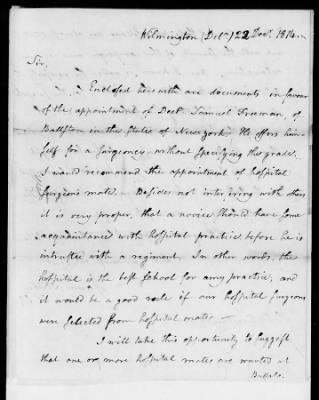 Wilmington (Del.) 22 Decr. 1814
Sir,
Enclosed herewith are documents in favour
of the appointment of Doct. Samuel Freeman, of
Ballston in the State of New york. He offers him-
self for a Surgeoncy without specifying the grade.
I would recommend the appointment of hospital
Surgeons mate. Besides not interfering with others
it is very proper, that a novice should have some
acquaintance with hospital practice, before he is
intrusted with a regiment. In other words, the
hospital is the best school for army practice, and
it would be a good rule if our hospital Surgeons
were selected from hospital mates—
I will take this opportunity to suggest
that one or more hospital mates are wanted at
Buffalo.